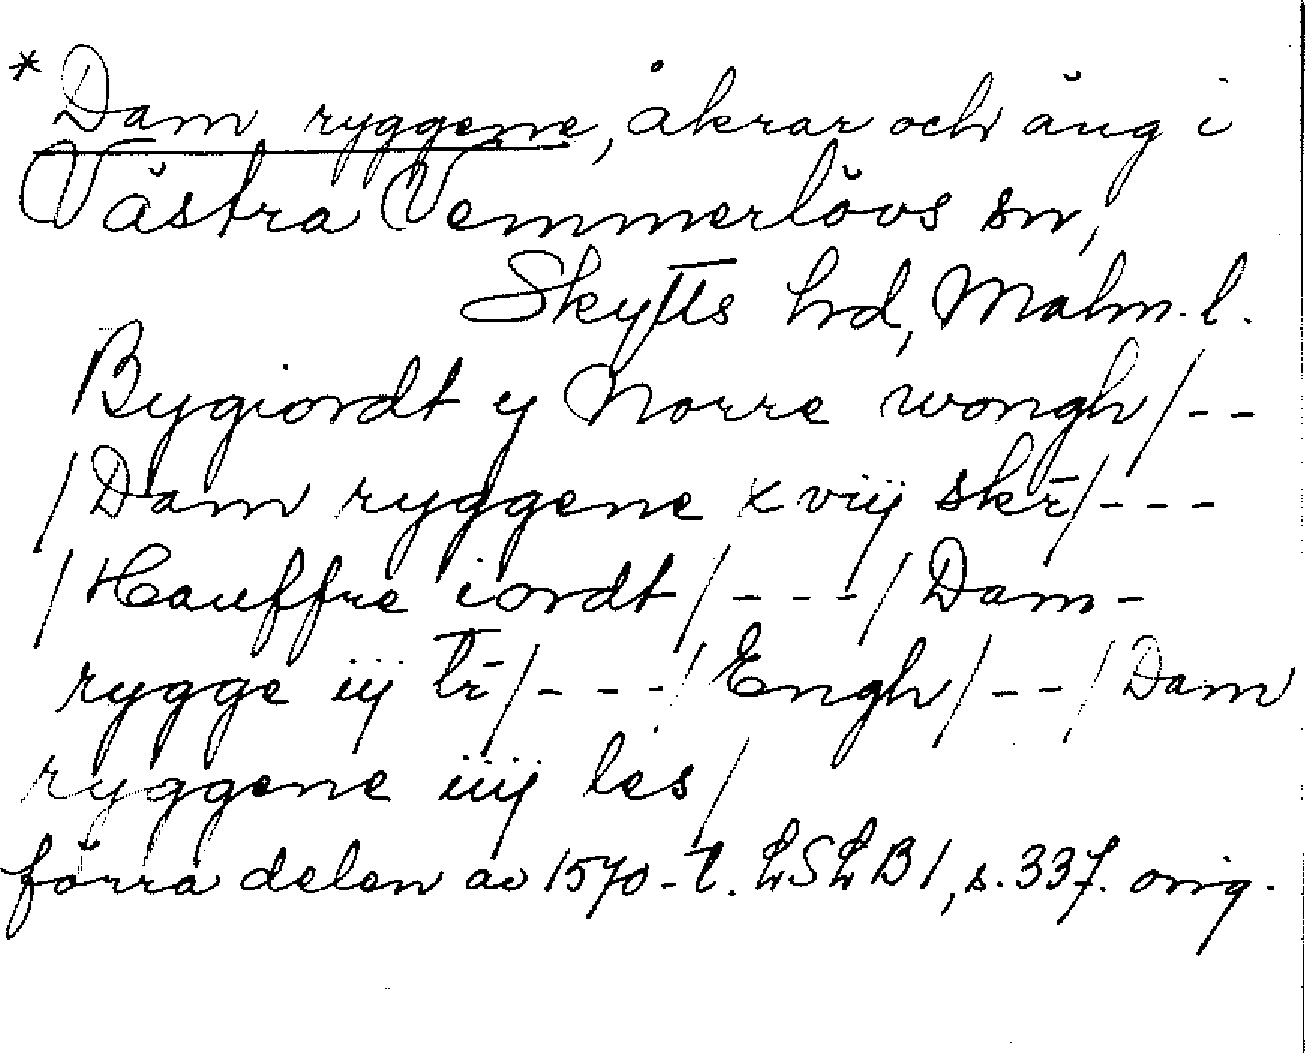 * Dam ryggene, åkrar och äng i
Västra Vemmerlövs sn,
Skytts hd, Malm. l.
Bygiordt y Norre wongh/--
/Dam ryggene xviij skr̄/---
/Hauffre iordt/---/Dam-
rygge iij tr̄/---/Engh/--/Dam
ryggene iiij les/
förra delen av 1570-t. LSLB1, s. 33f. orig.